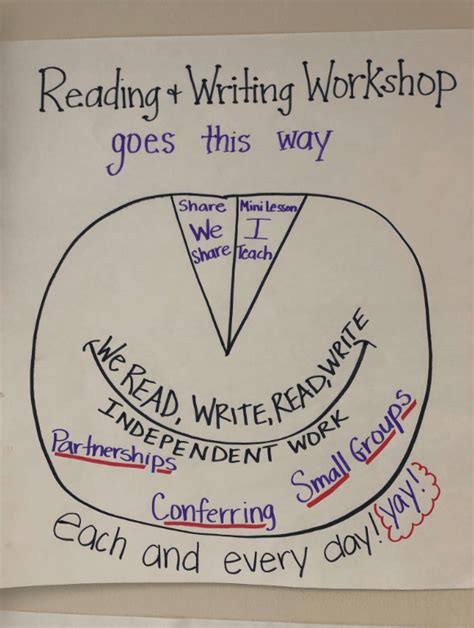 Reading + Writing Workshop
goes this way
Share
We
Share
Mini Lesson
I
Teach
We READ, WRITE, READ, WRITE
INDEPENDENT WORK
Partnerships
Conferring
Small Groups
each and every day! Yay!